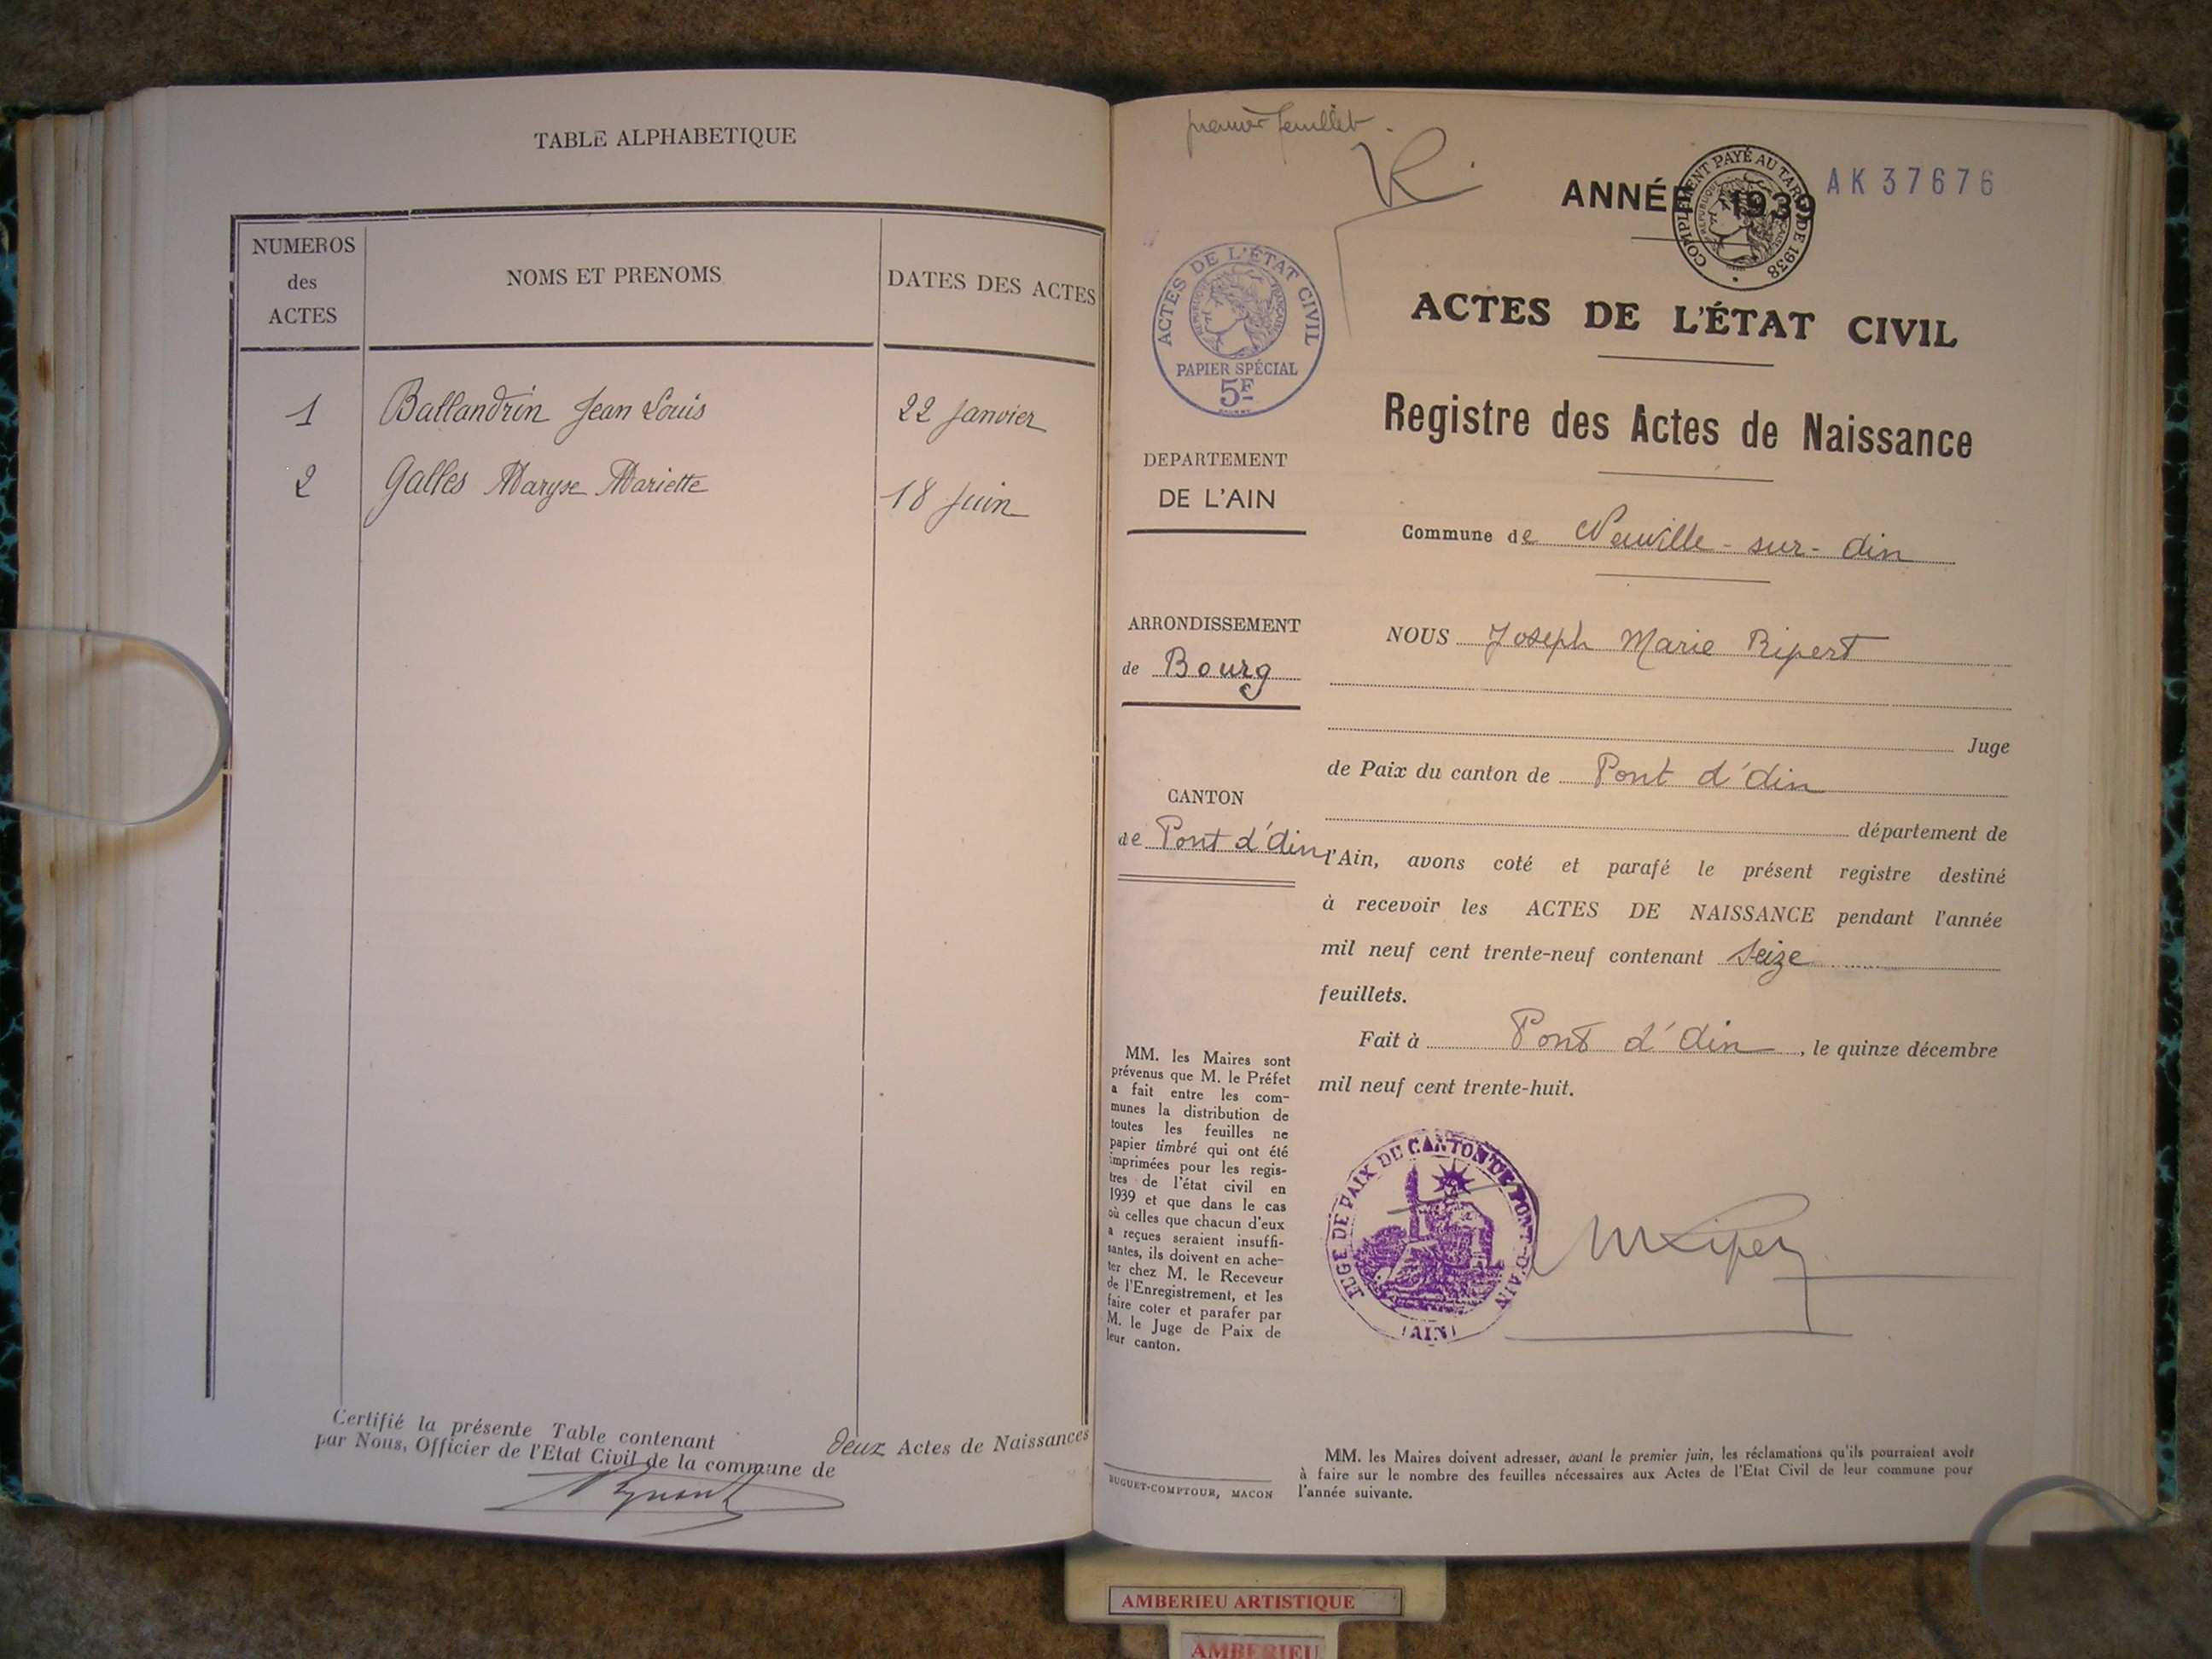 TABLE ALPHABETIQUE
NUMEROS
des
ACTES
NOMS ET PRENOMS
DATES DES ACTES
1 Ballandrin Jean Louis 22 Janvier
2 Galles Maryse Mariette 18 Juin
Certifié la présente Table contenant deux Actes de Naissances
par Nous, Officier de l'Etat Civil de la commune de
premier feuillet.
ANNÉE 1939
COMPLÉMENT PAYÉ AU TARIF DE 1938
AK 37676
ACTES DE L'ÉTAT CIVIL
RÉPUBLIQUE FRANÇAISE
PAPIER SPÉCIAL
5F
ACTES DE L'ÉTAT CIVIL
Registre des Actes de Naissance
DEPARTEMENT
DE L'AIN
Commune de Neuville - sur - Ain
ARRONDISSEMENT
de Bourg
CANTON
de Pont d'Ain
NOUS Joseph Marie Ripert
Juge
de Paix du canton de Pont d'Ain
département de
l'Ain, avons coté et parafé le présent registre destiné
à recevoir les ACTES DE NAISSANCE pendant l'année
mil neuf cent trente-neuf contenant Seize
feuillets.
Fait à Pont d'Ain, le quinze décembre
mil neuf cent trente-huit.
MM. les Maires sont
prévenus que M. le Préfet
a fait entre les com-
munes la distribution de
toutes les feuilles ne
papier timbré qui ont été
imprimées pour les regis-
tres de l'état civil en
1939 et que dans le cas
où celles que chacun d'eux
a reçues seraient insuffi-
santes, ils doivent en ache-
ter chez M. le Receveur
de l'Enregistrement, et les
faire coter et parafer par
M. le Juge de Paix de
leur canton.
JUGE DE PAIX DE CANTON DE PONT-D'AIN
(AIN)
BUGUET-COMPTOUR, MACON
MM. les Maires doivent adresser, avant le premier juin, les réclamations qu'ils pourraient avoir
à faire sur le nombre des feuilles nécessaires aux Actes de l'Etat Civil de leur commune pour
l'année suivante.
AMBERIEU ARTISTIQUE
AMBERIEU